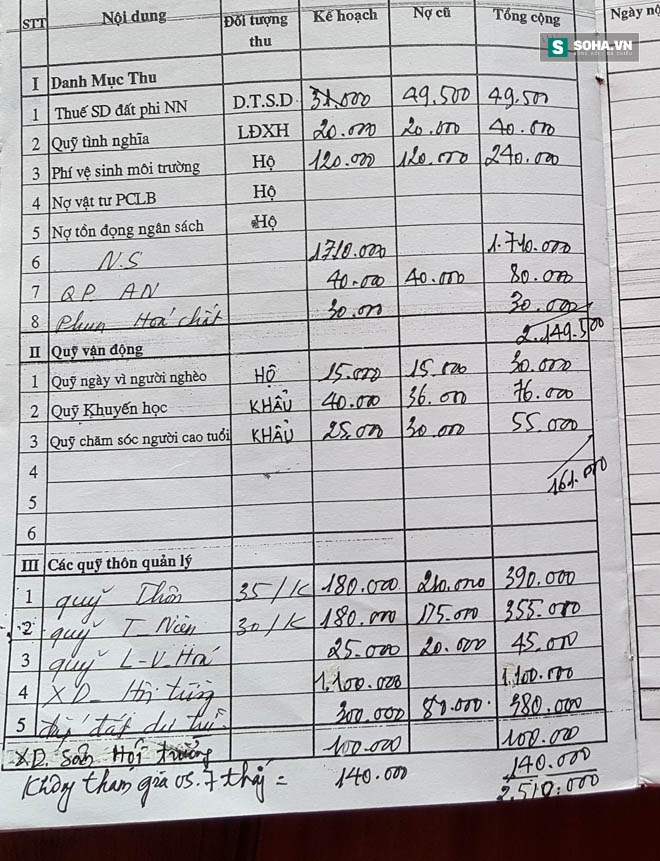 SOHA.VN
STT Nội dung Đối tượng thu Kế hoạch Nợ cũ Tổng cộng Ngày nộ
I Danh Mục Thu
1 Thuế SD đất phi NN D.T.S.D 31.000 49.500 49.500
2 Quỹ tình nghĩa LĐXH 20.000 20.000 40.000
3 Phí vệ sinh môi trường Hộ 120.000 120.000 240.000
4 Nợ vật tư PCLB Hộ
5 Nợ tồn đọng ngân sách Hộ
6 N.S 1710.000 1.710.000
7 Q.P. AN 40.000 40.000 80.000
8 Phun Hoá chất 30.000 30.000
2.149.500
II Quỹ vận động
1 Quỹ ngày vì người nghèo HỘ 15.000 15.000 30.000
2 Quỹ Khuyến học KHẨU 40.000 36.000 76.000
3 Quỹ chăm sóc người cao tuổi KHẨU 25.000 30.000 55.000
4 161.000
5
6
III Các quỹ thôn quản lý
1 quỹ Thôn 35/K 180.000 210.000 390.000
2 quỹ T_Niên 30/K 180.000 175.000 355.000
3 quỹ L-V Hoá 25.000 20.000 45.000
4 XD_ Hội 1.100.000 1.100.000
5 đất dự 300.000 80.000. 380.000
XD. Sân Hội trường 100.000 100.000
Không tham gia 05.7 thấy = 140.000 140.000
2.510.000